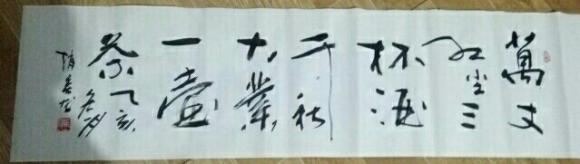 萬丈
红尘三
杯酒
千秋
大業
一壺
茶乙亥